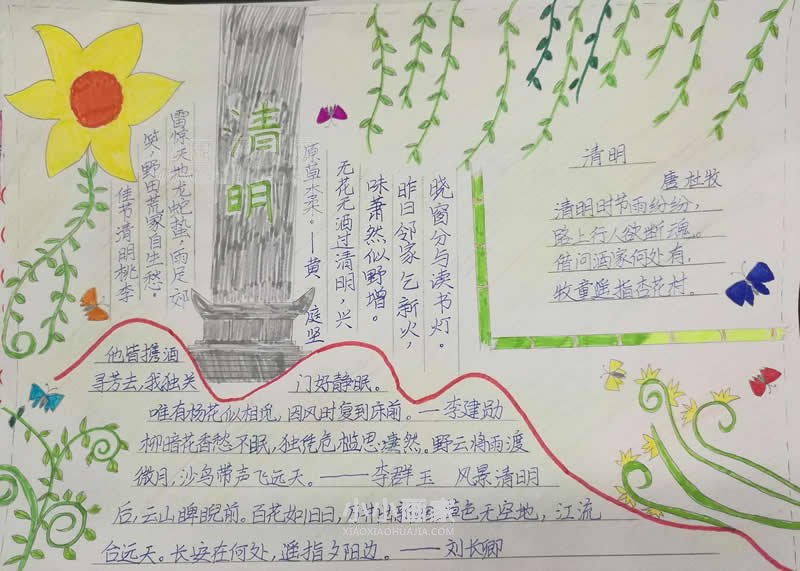 清明
佳节清明桃李
笑,野田荒家自生愁。
雷惊天地龙蛇蛰,雨足郊
原草木柔。—黄 庭坚
无花无酒过清明,兴
味萧然似野增。
昨日邻家乞新火,
晓窗分与读书灯。
清明
唐 杜牧
清明时节雨纷纷,
路上行人欲断魂。
借问酒家何处有,
牧童遥指杏花村。
他皆携酒
寻芳去,我独关 门好静眠。
唯有杨花似相觅,因风时复到床前。—李建勋
柳暗花香愁不眠,独凭危槛思凄然。野云将雨渡
微月,沙鸟带声飞远天。——李群玉 风景清明
后,云山睥睨前。百花如旧日,草色无空地,江流
台远天。长安在何处,遥指夕阳边。——刘长卿
小小画家
XIAOXIAOHUAJIA.COM